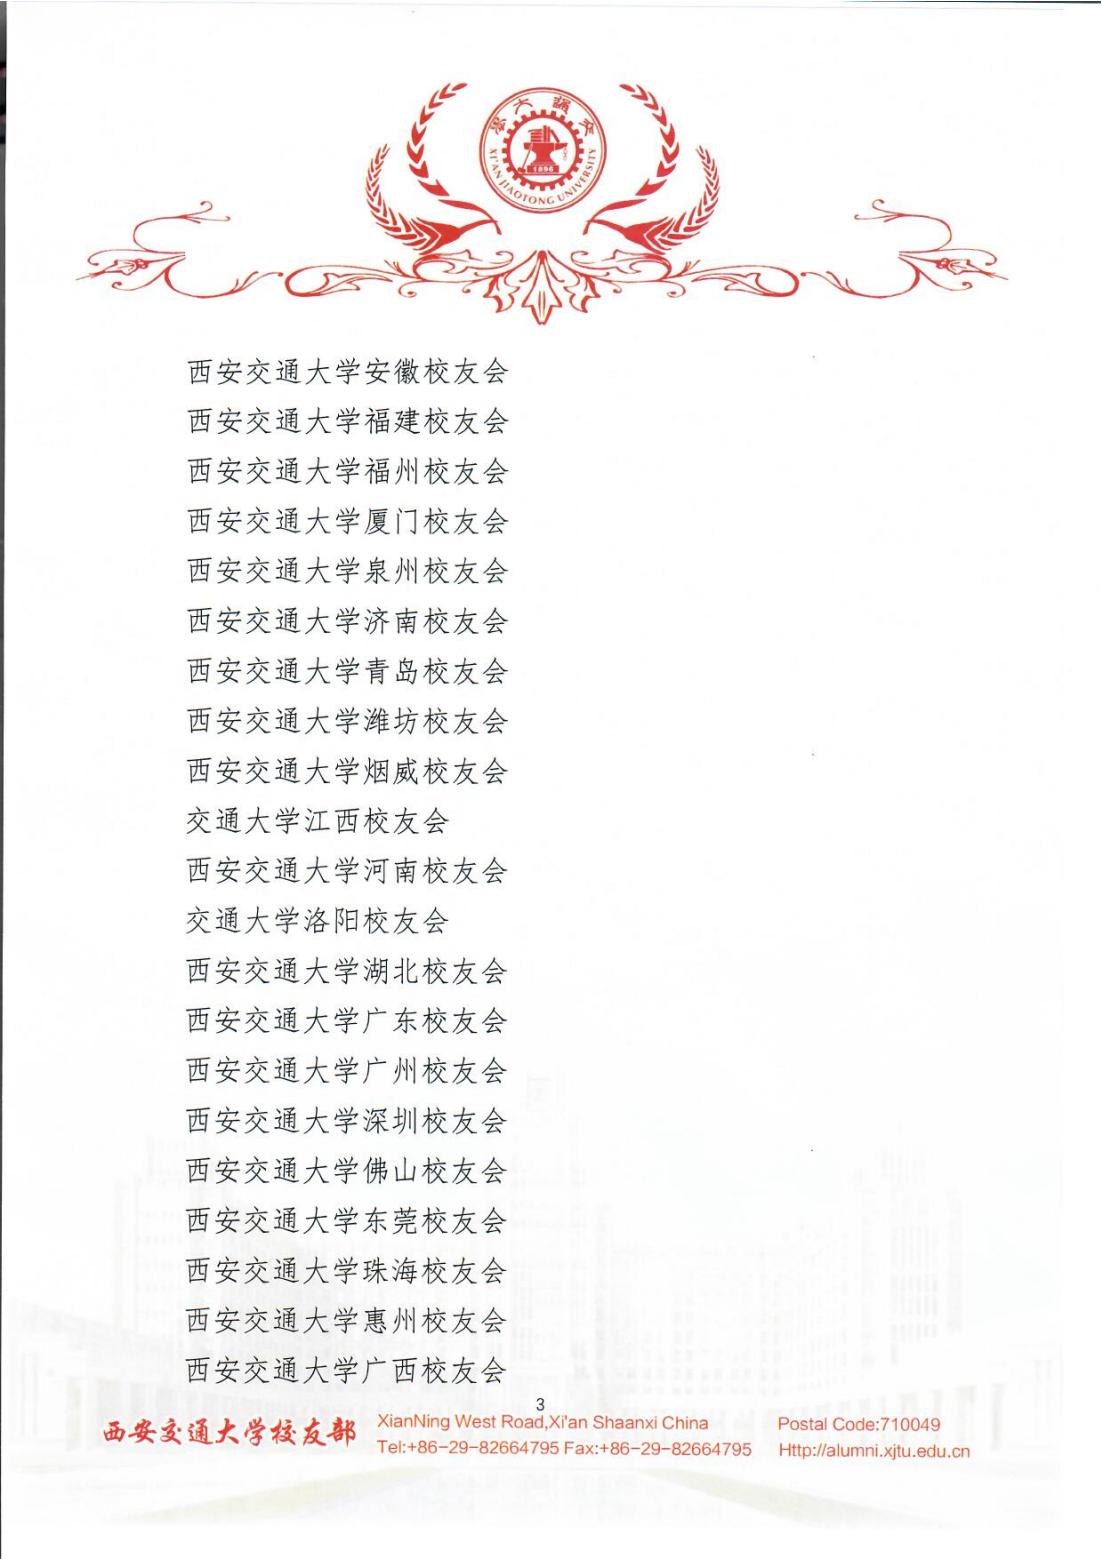 交通大學
XI'AN JIAOTONG UNIVERSITY
1896
西安交通大学安徽校友会
西安交通大学福建校友会
西安交通大学福州校友会
西安交通大学厦门校友会
西安交通大学泉州校友会
西安交通大学济南校友会
西安交通大学青岛校友会
西安交通大学潍坊校友会
西安交通大学烟威校友会
交通大学江西校友会
西安交通大学河南校友会
交通大学洛阳校友会
西安交通大学湖北校友会
西安交通大学广东校友会
西安交通大学广州校友会
西安交通大学深圳校友会
西安交通大学佛山校友会
西安交通大学东莞校友会
西安交通大学珠海校友会
西安交通大学惠州校友会
西安交通大学广西校友会
3
西安交通大学校友部
XianNing West Road,Xi'an Shaanxi China
Postal Code:710049
Tel:+86-29-82664795 Fax:+86-29-82664795
Http://alumni.xjtu.edu.cn